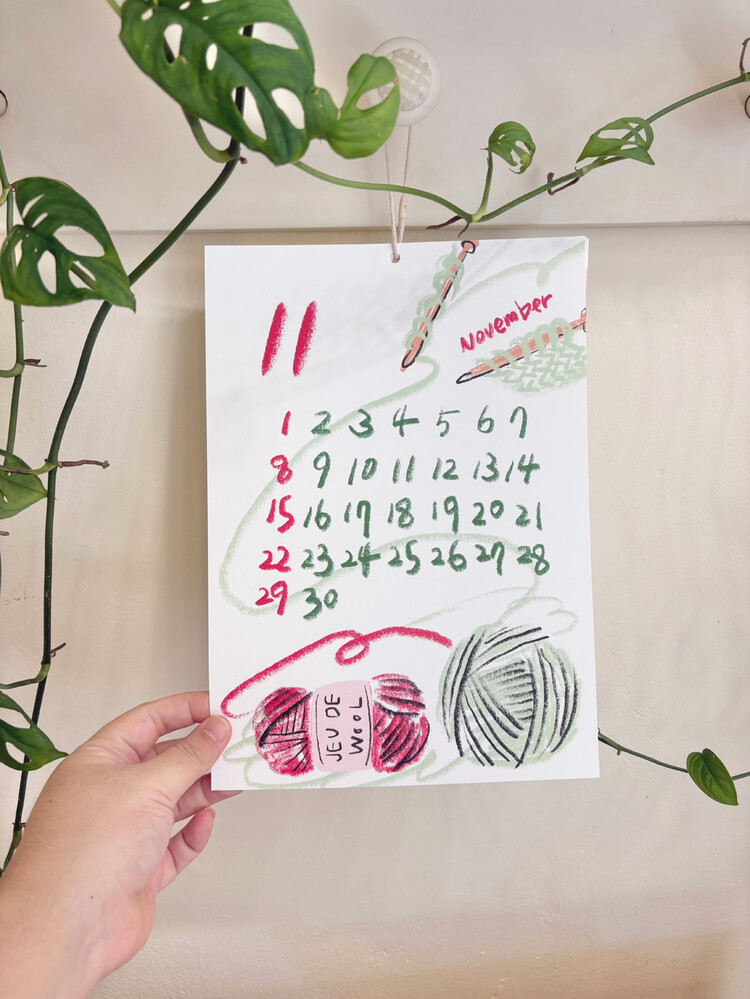 11
November
1 2 3 4 5 6 7
8 9 10 11 12 13 14
15 16 17 18 19 20 21
22 23 24 25 26 27 28
29 30
JEU DE
WOOL